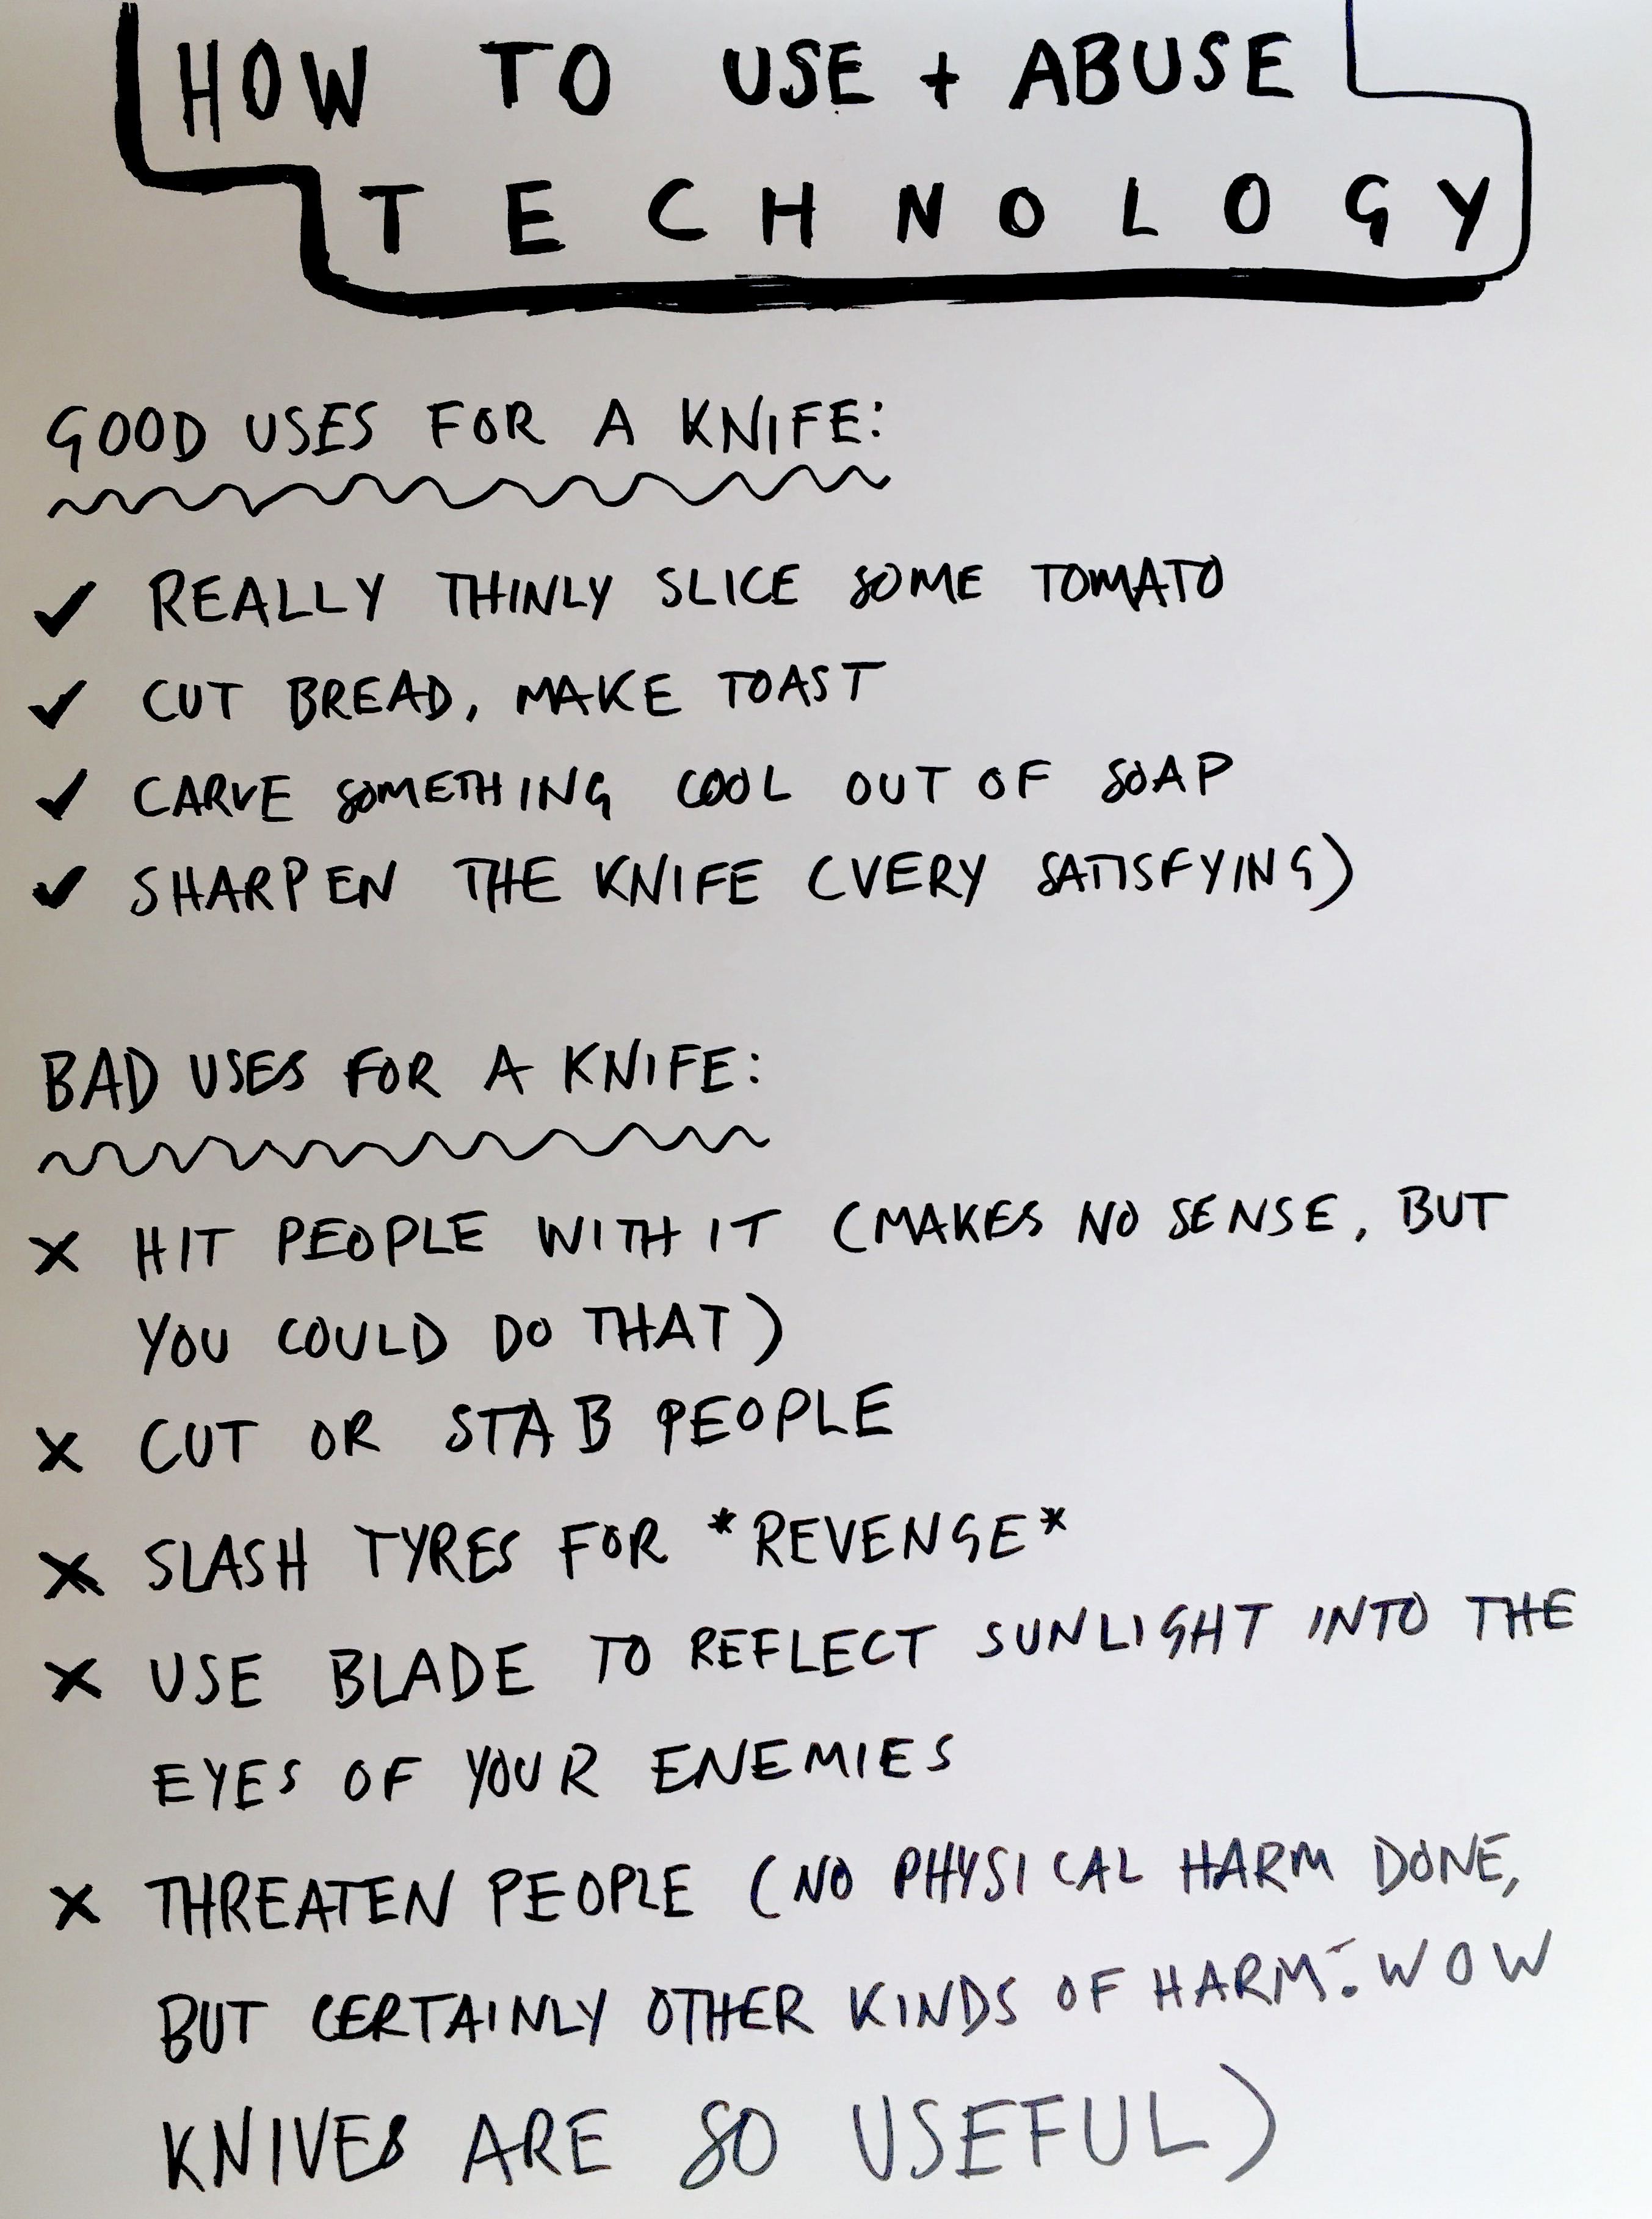 HOW TO USE + ABUSE
TECHNOLOGY
GOOD USES FOR A KNIFE:
✓ REALLY THINLY SLICE SOME TOMATO
✓ CUT BREAD, MAKE TOAST
✓ CARVE SOMETHING COOL OUT OF SOAP
✓ SHARPEN THE KNIFE (VERY SATISFYING)
BAD USES FOR A KNIFE:
✗ HIT PEOPLE WITH IT (MAKES NO SENSE, BUT
YOU COULD DO THAT)
✗ CUT OR STAB PEOPLE
✗ SLASH TYRES FOR *REVENGE*
✗ USE BLADE TO REFLECT SUNLIGHT INTO THE
EYES OF YOUR ENEMIES
✗ THREATEN PEOPLE (NO PHYSICAL HARM DONE,
BUT CERTAINLY OTHER KINDS OF HARM. WOW
KNIVES ARE SO USEFUL)